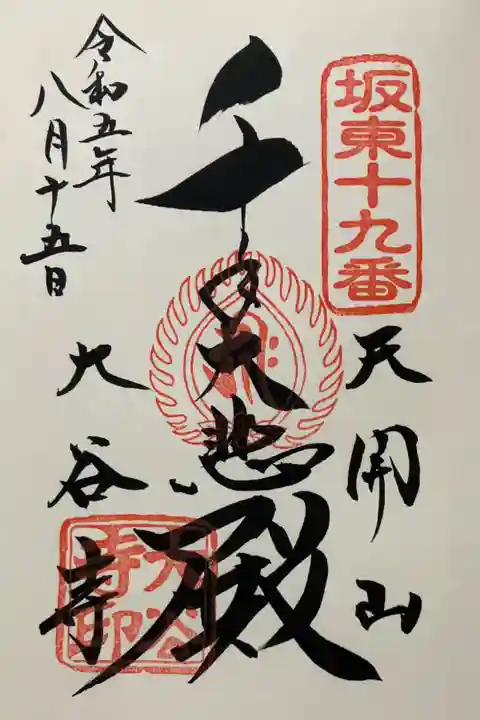 坂東十九番
天開山
千手大悲殿
令和五年
八月十五日
大谷寺
大谷
寺印